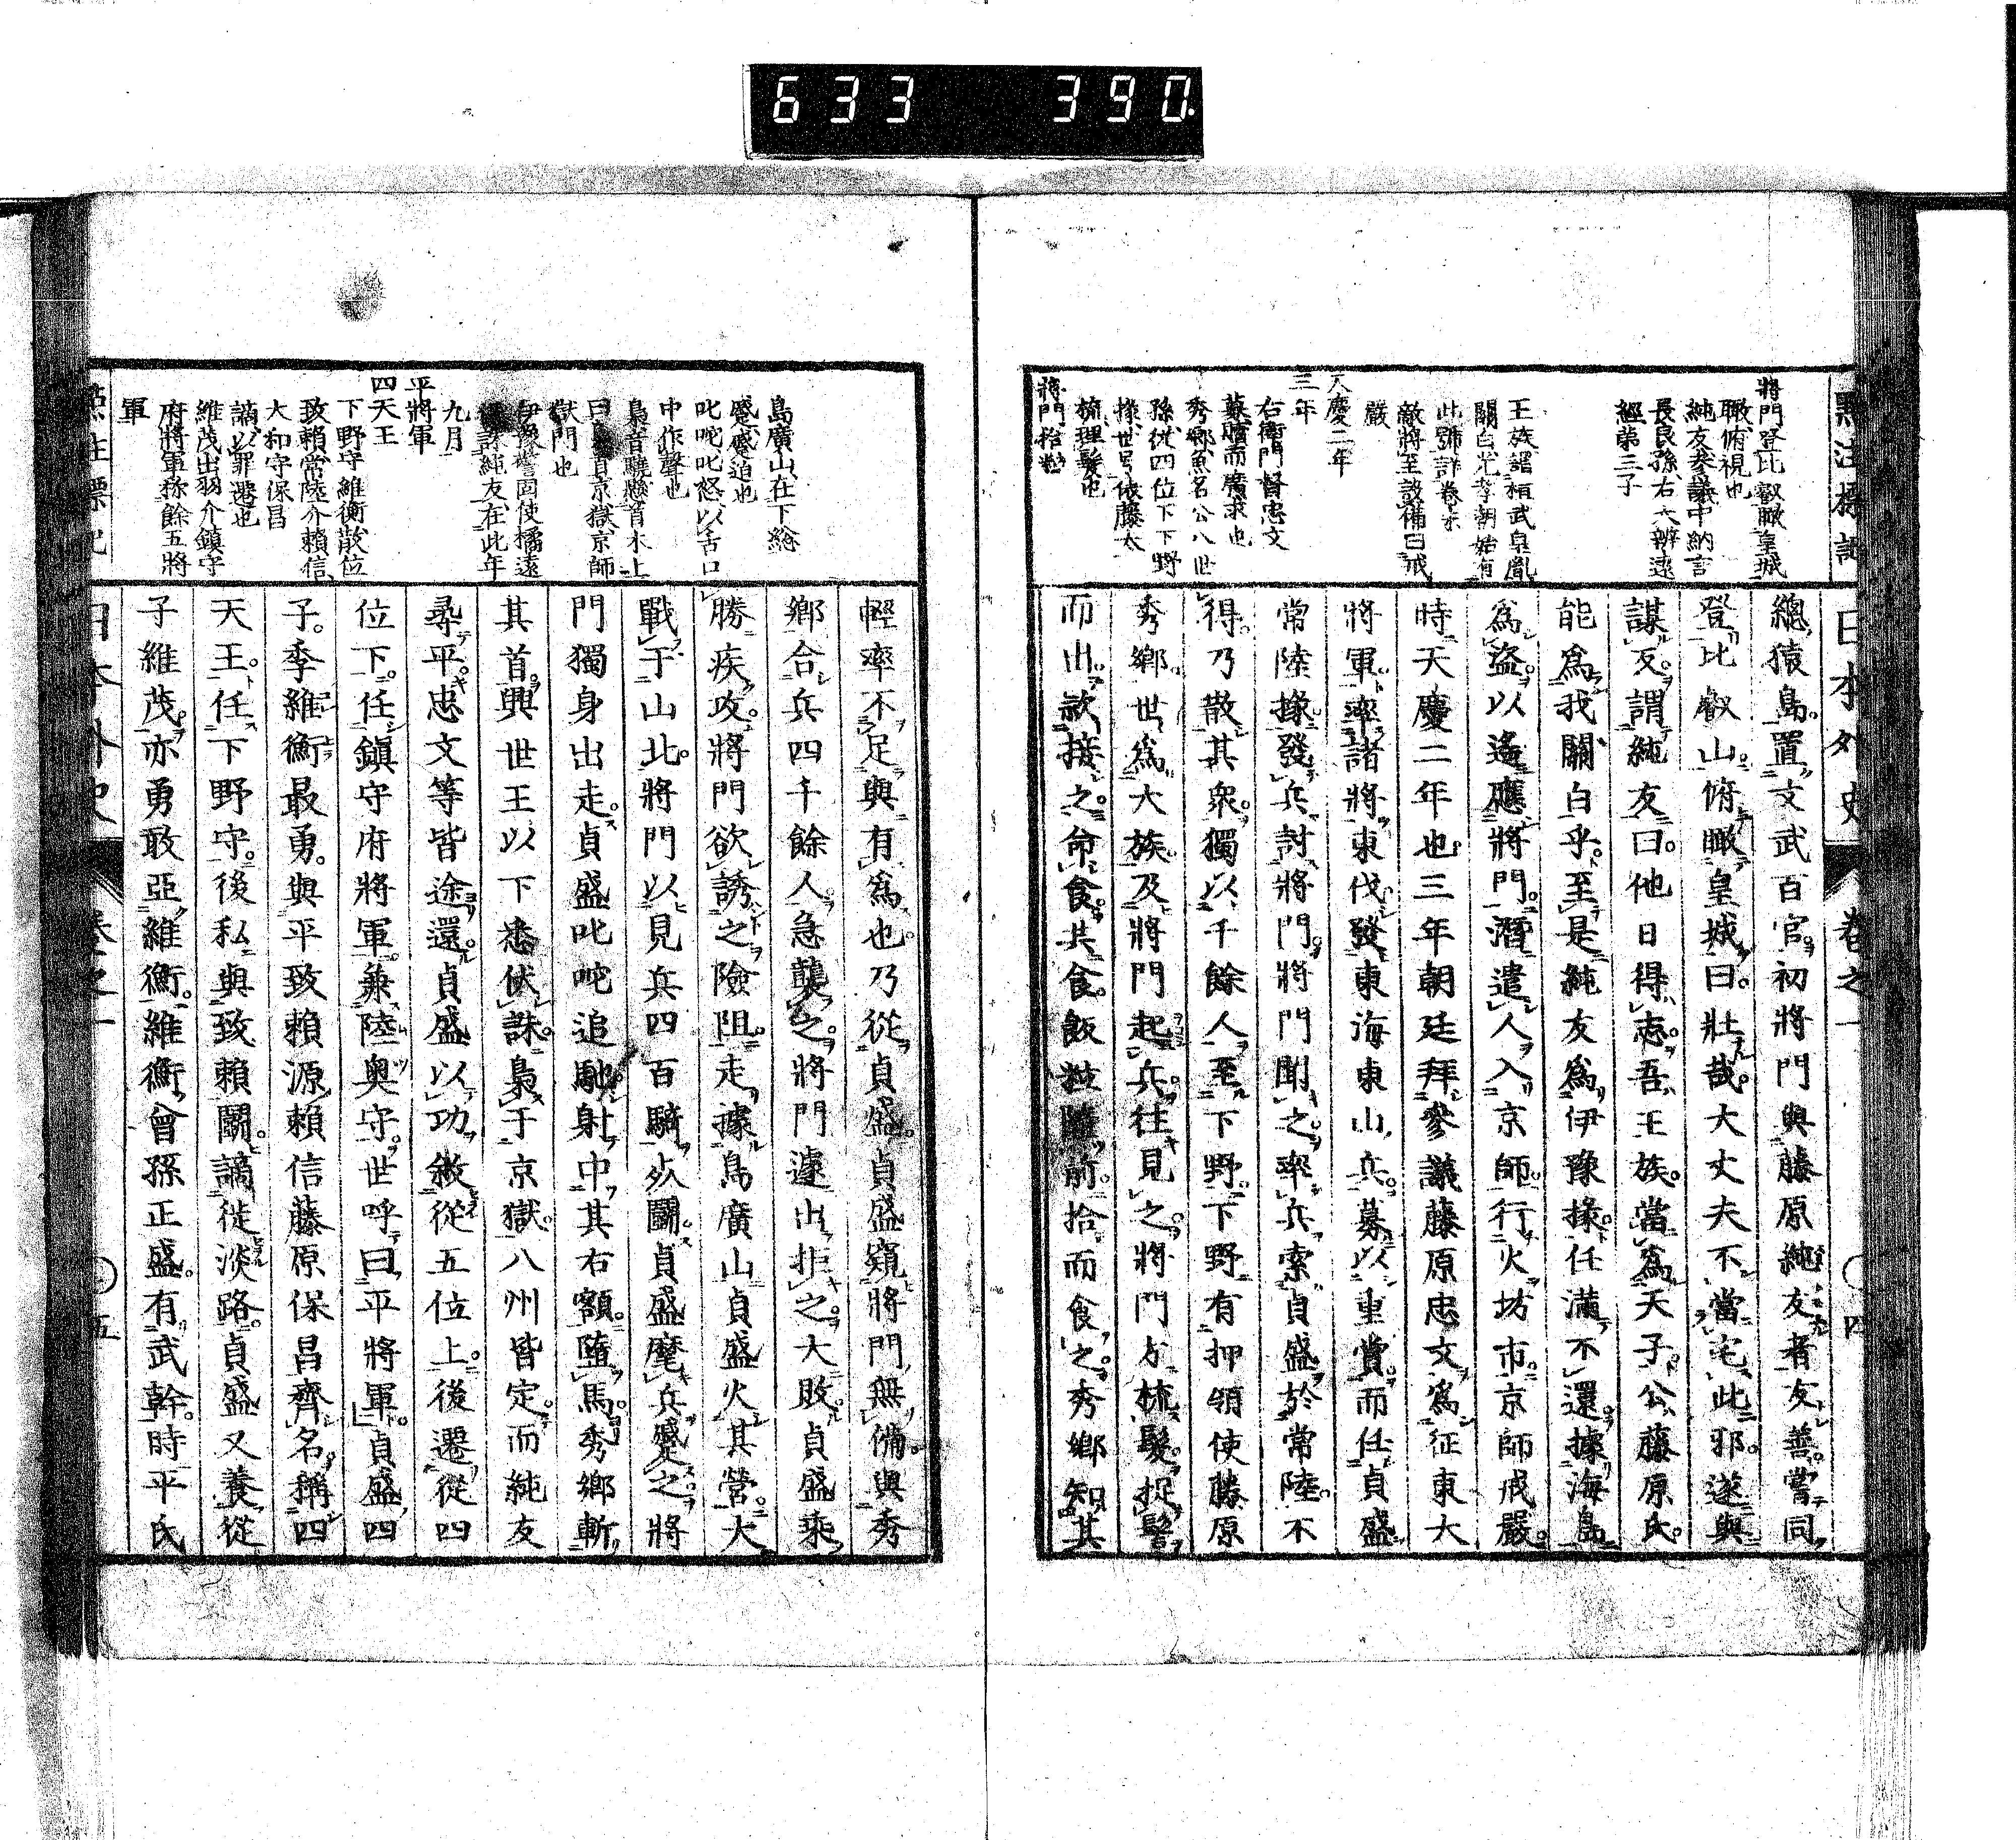 633 390
日本外史 卷之一 四
將門登比叡瞰皇城
瞰俯視也
純友參議中納言
長良孫右大辨遠
經第三子
王族謂桓武皇胤
關白光孝朝始有
此號詳卷末
敵將至設備曰戒
嚴
天慶二年
三年
右衛門督忠文
募購而廣求也
秀鄉魚名公八世
孫從四位下下野
掾世号俵藤太
梳理髮也
將門拾粒
總猿島置文武百官初將門與藤原純友者友善嘗同
登比叡山俯瞰皇城曰壯哉大丈夫不當宅此邪遂與
謀反謂純友曰他日得志吾王族當爲天子公藤原氏
能爲我關白乎至是純友爲伊豫掾任滿不還據海島
爲盜以遙應將門潛遣人入京師行火坊市京師戒嚴
時天慶二年也三年朝廷拜參議藤原忠文爲征東大
將軍率諸將東伐發東海東山兵募以重賞而任貞盛
常陸掾發兵討將門將門聞之率兵索貞盛於常陸不
得乃散其衆獨以千餘人至下野下野有押領使藤原
秀鄉世爲大族及將門起兵往見之將門方梳髮捉髻
而出款接之命食共食飯粒隨前拾而食之秀鄉知其
島廣山在下總
蹙蹙迫也
叱咤叱怒以舌口
中作聲也
梟首驍懸首木上
曰梟首京獄京師
獄門也
伊豫警固使橘遠
誅純友在此年
九月
平將軍
四天王
下野守維衡散位
致賴常陸介賴信
大和守保昌
謫以罪遷也
維茂出羽介鎮守
府將軍称餘五將
軍
輕率不足與有爲也乃從貞盛貞盛窺將門無備與秀
鄉合兵四千餘人急襲之將門遽出拒之大敗貞盛乘
勝疾攻將門欲誘之險阻走據島廣山貞盛火其營大
戰于山北將門以見兵四百騎殊鬭貞盛麾兵蹙之將
門獨身出走貞盛叱咤追馳射中其右額墮馬秀鄉斬
其首興世王以下悉伏誅梟于京獄八州皆定而純友
尋平忠文等皆途還貞盛以功敘從五位上後遷從四
位下任鎮守府將軍兼陸奥守世呼曰平將軍貞盛四
子季維衡最勇與平致賴源賴信藤原保昌齊名稱四
天王任下野守後私與致賴鬭謫徙淡路貞盛又養從
子維茂亦勇敢亞維衡維衡曾孫正盛有武幹時平氏
日本外史 卷之一 五